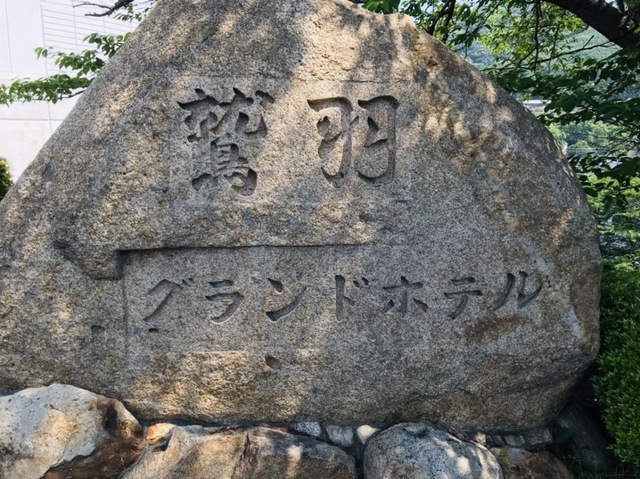 鷲羽
グランドホテル